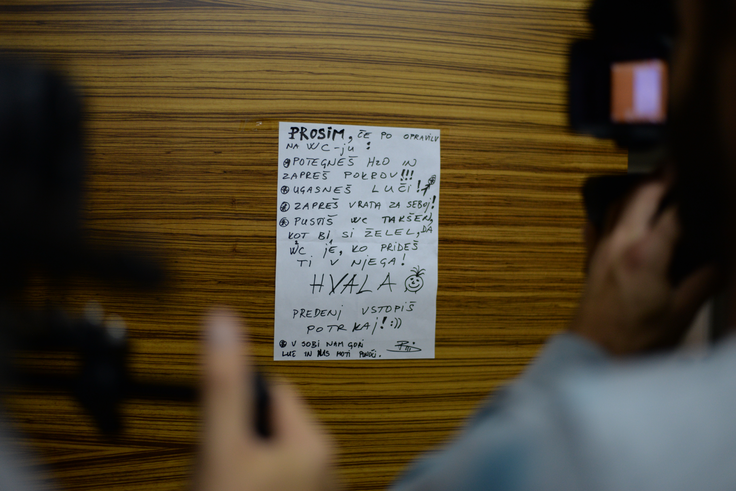 PROSIM, ČE PO OPRAVILU
NA WC-ju :
POTEGNEŠ H2O IN
ZAPREŠ POKROV!!!
UGASNEŠ LUČI!
ZAPREŠ VRATA ZA SEBOJ!
PUSTIŠ WC TAKŠEN,
KOT BI SI ŽELEL, DA
WC JE, KO PRIDEŠ
TI V NJEGA!
HVALA
PREDENJ VSTOPIŠ
POTRKAJ! :))
V SOBI NAM GORI
LUČ IN NAS MOTI PONOČI.